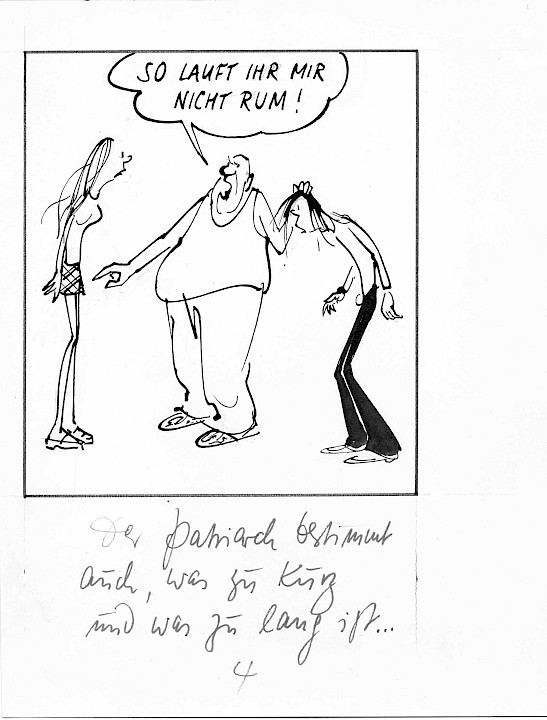 SO LAUFT IHR MIR
NICHT RUM!
Der Patriarch bestimmt
auch, was zu kurz
und was zu lang ist...
4